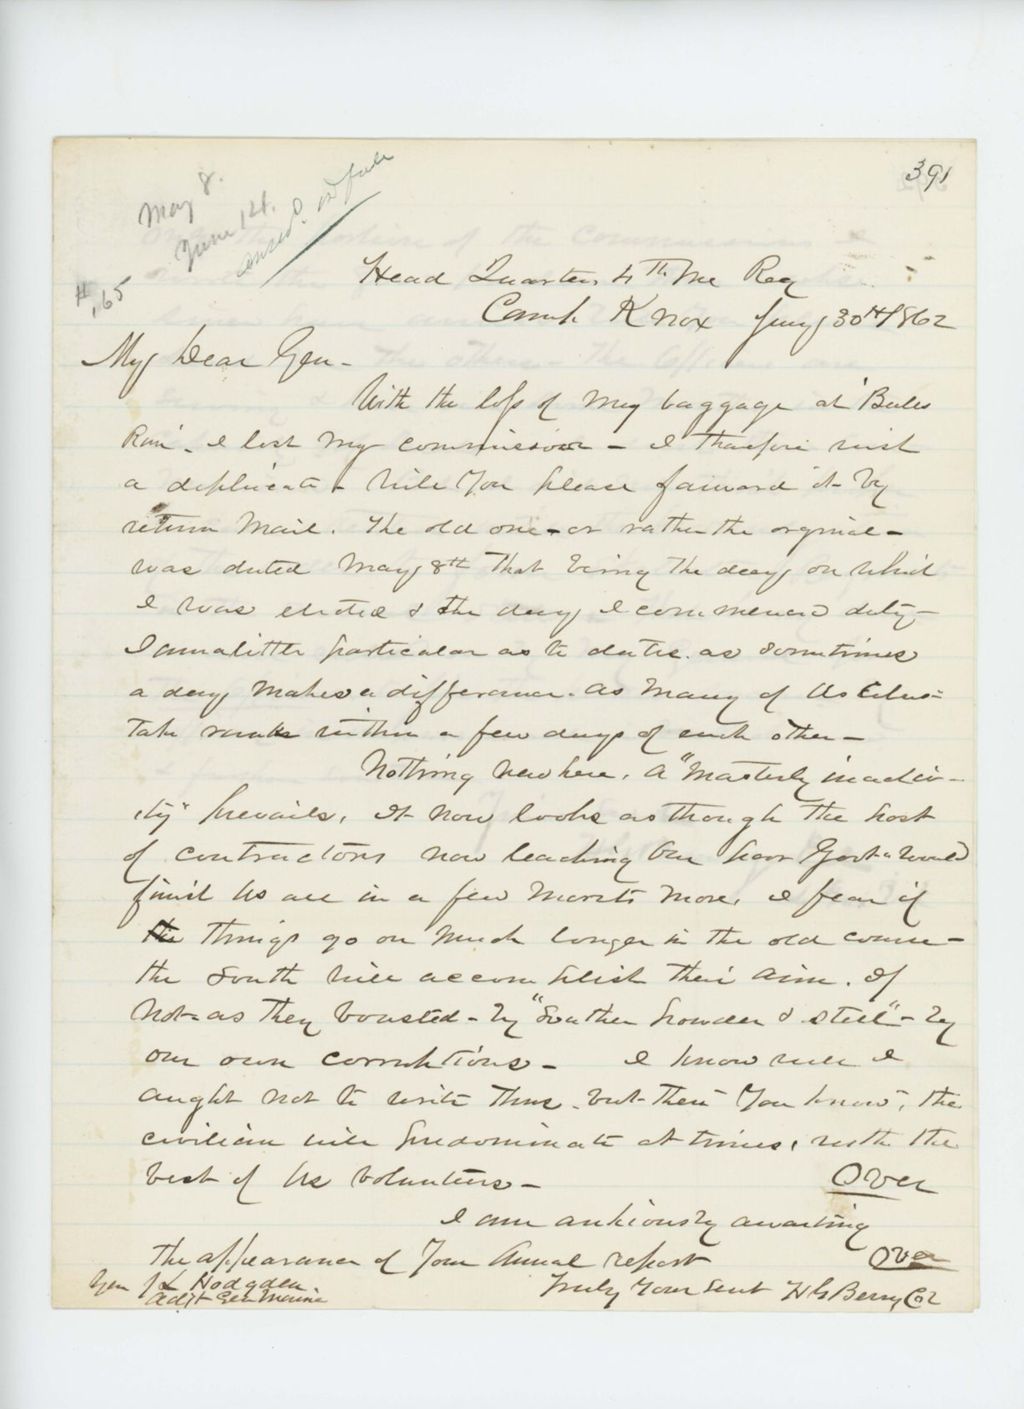 391
May 8.
June 14.
answd. on file
#,65
Head Quarters 4th Me Reg
Camp Knox Jany 30th/862
My Dear Gen -
With the loss of my baggage at "Bulls
Run". I lost my commission - I therefore wish
a duplicate - will you please forward it by
return Mail. The old one - or rather the orginal -
was dated May 8th that being the day on which
I was elected & the day I commenced duty -
I am a little particular as to dates. as sometimes
a day makes a difference. as many of us Cols =
take rank within a few days of each other -
Nothing new here. A "Masterly inactiv-
ity" prevails. It now looks as though the host
of contractors now leaching our poor Govt - would
finish us all in a few Months more. I fear if
the things go on much longer in the old course -
the South will accomplish their aim. If
not - as they boasted - by "Southern powder & steel" - by
our own corruptions - I know well I
aught not to write thus - but then "you know", the
civilian will predominate at times, with the
best of us volunteers - Over
I am ankiously awaiting
the appearance of your Annual report Over
Truly Your Sevt H G Berry Col
Gen J L Hodgdon
Adjt Gen Maine